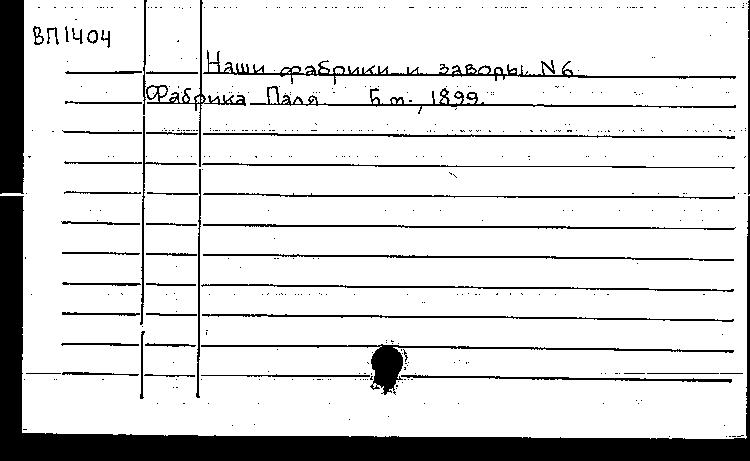 ВП1404
Наши фабрики и заводы N6
Фабрика Паля Б.т., 1899.